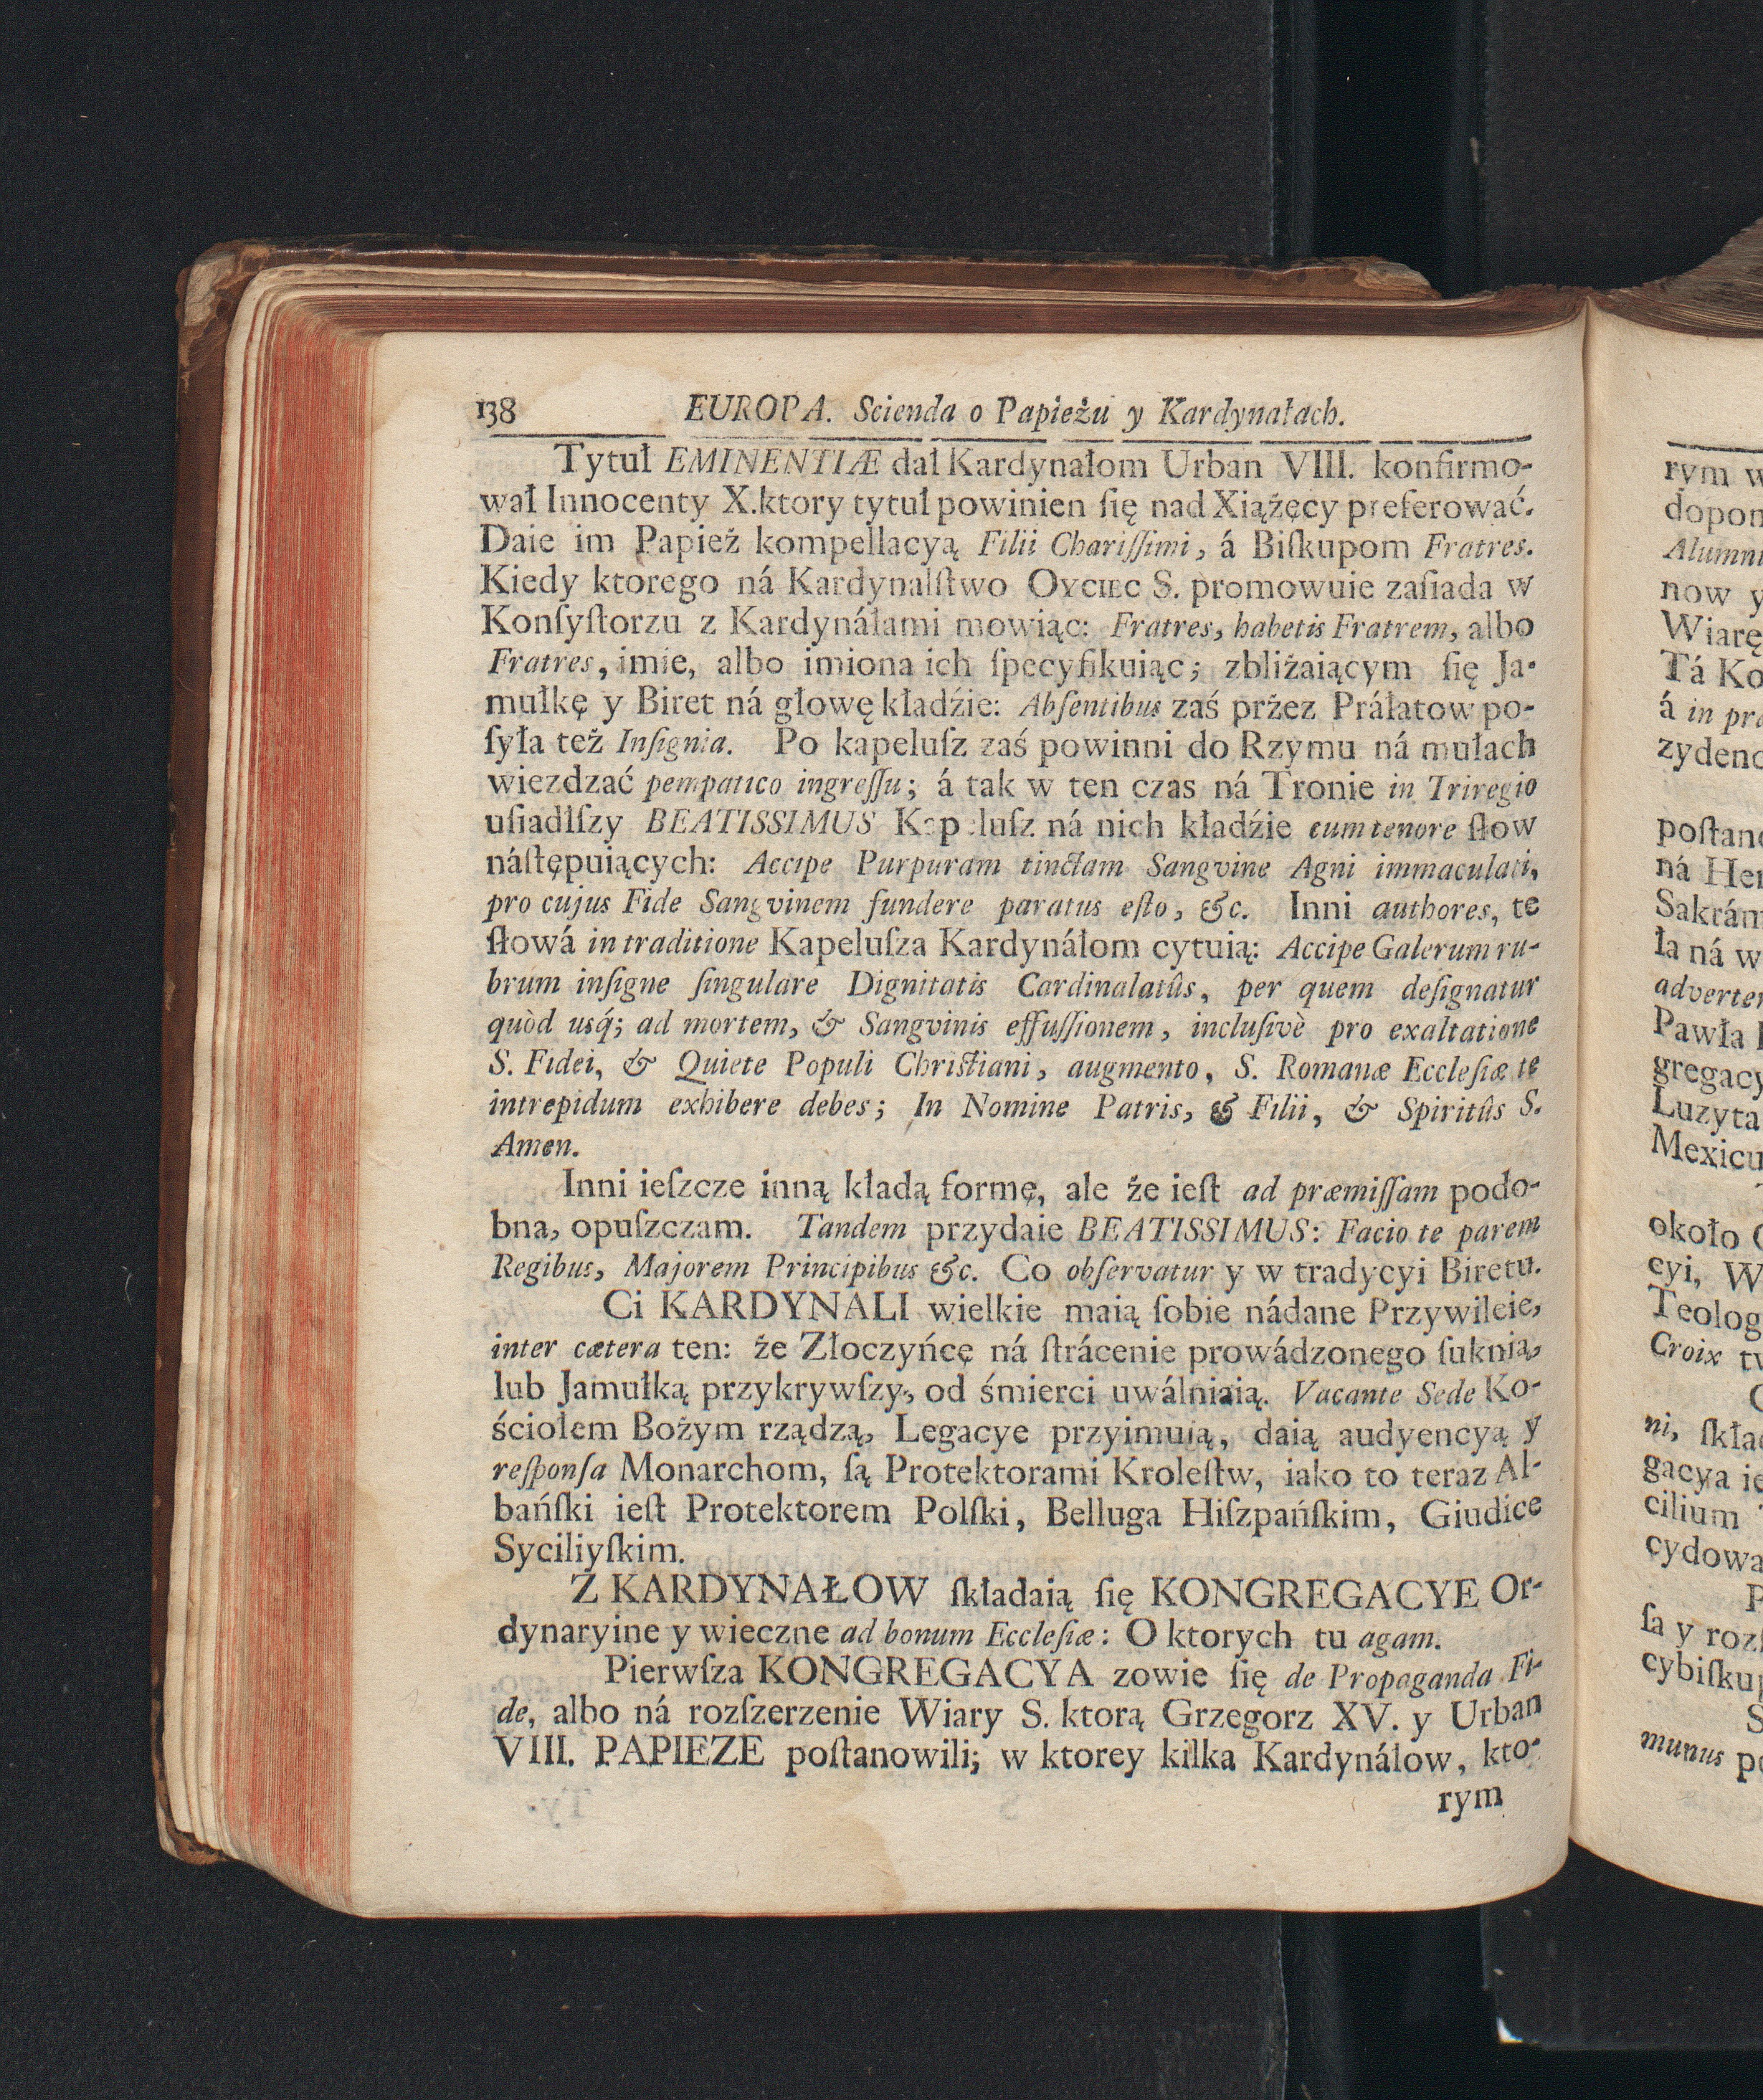 138 EUROPA. Scienda o Papieżu y Kardynałach.
Tytuł EMINENTIÆ dał Kardynałom Urban VIII. konfirmo-
wał Innocenty X.ktory tytuł powinien ſię nad Xiążęcy preferować.
Daie im Papież kompellacyą Filii Chariſſimi, á Biſkupom Fratres.
Kiedy ktorego ná Kardynalſtwo OYCIEC S. promowuie zaſiada w
Konſyſtorzu z Kardynáłami mowiąc: Fratres, habetis Fratrem, albo
Fratres, imie, albo imiona ich ſpecyfikuiąc; zbliżaiącym ſię Ja-
mułkę y Biret ná głowę kładźie: Abſentibus zaś przez Práłatow po-
ſyła też Inſignia. Po kapeluſz zaś powinni do Rzymu ná mułach
wiezdzać pempatico ingreſſu; á tak w ten czas ná Tronie in Triregio
uſiadłſzy BEATISSIMUS Kapeluſz ná nich kładźie cum tenore ſłow
náſtępuiących: Accipe Purpuram tinctam Sangvine Agni immaculati,
pro cujus Fide Sangvinem fundere paratus eſto, &c. Inni authores, te
ſłowá in traditione Kapeluſza Kardynáłom cytuią: Accipe Galerum ru-
brum inſigne ſingulare Dignitatis Cardinalatûs, per quem deſignatur
quòd usq́; ad mortem, & Sangvinis effuſſionem, incluſivè pro exaltatione
S. Fidei, & Quiete Populi Chriſtiani, augmento, S. Romanæ Eccleſiæ te
intrepidum exhibere debes; In Nomine Patris, & Filii, & Spiritûs S.
Amen.
Inni ieſzcze inną kładą formę, ale że ieſt ad præmiſſam podo-
bna, opuſzczam. Tandem przydaie BEATISSIMUS: Facio te parem
Regibus, Majorem Principibus &c. Co obſervatur y w tradycyi Biretu.
Ci KARDYNALI wielkie maią ſobie nádane Przywileie,
inter cætera ten: że Złoczyńcę ná ſtrácenie prowádzonego ſuknią,
lub Jamułką przykrywſzy, od śmierci uwálniaią. Vacante Sede Ko-
ściołem Bożym rządzą, Legacye przyimuią, daią audyencyą y
reſponſa Monarchom, ſą Protektorami Kroleſtw, iako to teraz Al-
bańſki ieſt Protektorem Polſki, Belluga Hiſzpańſkim, Giudice
Syciliyſkim.
Z KARDYNAŁOW ſkładaią ſię KONGREGACYE Or-
dynaryine y wieczne ad bonum Eccleſiæ: O ktorych tu agam.
Pierwſza KONGREGACYA zowie ſię de Propaganda Fi-
de, albo ná rozſzerzenie Wiary S. ktorą Grzegorz XV. y Urban
VIII. PAPIEZE poſtanowili; w ktorey kilka Kardynáłow, kto-
rym